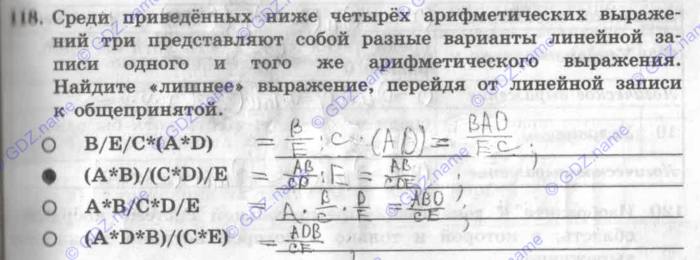 118. Среди приведённых ниже четырёх арифметических выраже-
ний три представляют собой разные варианты линейной за-
писи одного и того же арифметического выражения.
Найдите «лишнее» выражение, перейдя от линейной записи
к общепринятой.
B/E/C*(A*D) = B/E : C · (AD) = BAD/EC;
(A*B)/(C*D)/E = AB/CD : E = AB/CDE;
A*B/C*D/E = A · B/C · D/E = ABD/CE;
(A*D*B)/(C*E) = ADB/CE;
© GDZ.name